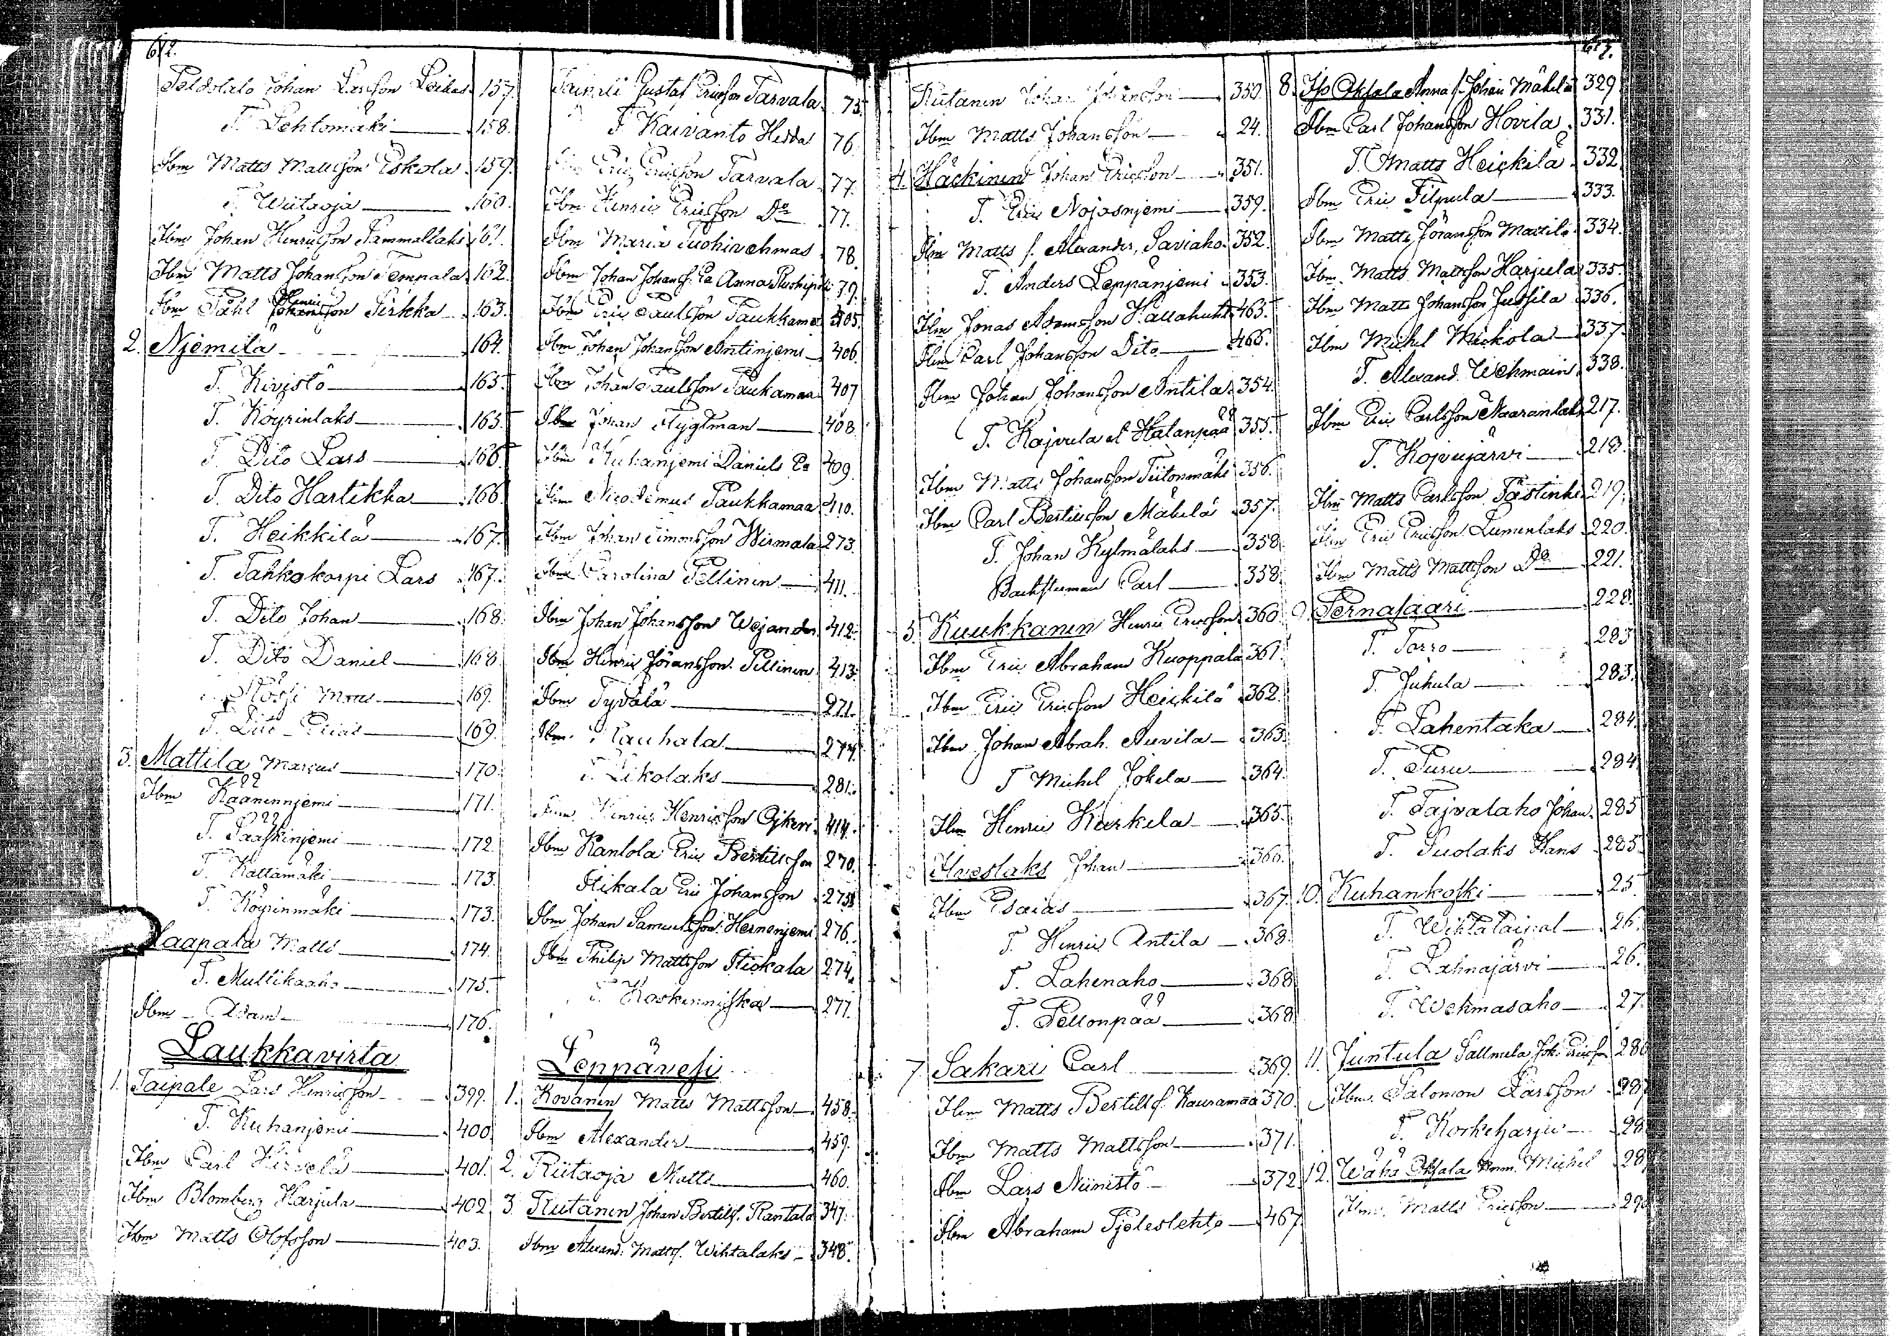 612.
Peldolalo Johan Larsson Leikas 157.
T. Lehtomäki 158.
Ibm Matts Mattsson Eskola 159.
T. Wiitaoja 160.
Ibm Johan Henricsson Sammallaks 161.
Ibm Matts Johansson Tempala 162.
Ibm Påhl Henricsson Sirkka 163.
2. Njemilä 164.
T. Kivistö 165.
T. Köyrinlaks 165
T. Dito Lars 166
T. Dito Hartikka 166
T. Heikkilä 167.
T. Tahkokorpi Lars 167.
T. Dito Johan 168.
T. Dito Daniel 168
169.
T. Dito 169.
3. Mattila Marcus 170.
Ibm Kaanennjemi 171.
T. Pääskinjemi 172
T. Kattämäki 173.
T. Köyrinmäki 173.
Laapala Matts 174.
T. Mullikaaho 175.
Ibm Adam 176.
Laukkavirta
1. Taipale Lars Henricsson 399.
T. Kuhanjemi 400.
Ibm Carl 401.
Ibm Blomberg Harjula 402
Ibm Matts Olofsson 403.
Gustaf Ericsson Tarvala 75
T Kaivanto Hedda 76.
Eric Ericsson Tarvala 77.
Ibm Henric Ericsson Do 77.
Ibm Maria Tuohivehmas 78.
Ibm Johan Johanss. Ea Anna 79.
Ibm Eric Paulsson Paukkama 405.
Ibm Johan Johansson Antinjemi 406.
Ibm Johan Paulsson Paukamaa 407
Ibm Johan Flygtman 408
Ibm Kuhanjemi Daniels Ea 409.
Ibm Nicodemus Paukkamaa 410.
Ibm Johan Simonsson Wirmala 273.
Ibm Carolina Pellinin 411.
Ibm Johan Johansson Wejander 412.
Ibm Henric Jöransson Pellinin 413.
Ibm Tyvälä 271.
Ibm Rauhala 274.
T. Likolaks 281.
Ibm Henric Henricsson Ojkeri 414.
Ibm Kantola Eric Bertilsson 270.
Hikala Eric Johansson 275.
Ibm Johan Samuelsson Hernenjemi 276.
Ibm Philip Mattsson Hiekala 274.
T Koskenniska 277.
Leppävesi
1. Kovanin Matts Mattsson 458.
Ibm Alexander 459.
2. Riitaoja Matts 460.
3. Rutanin Johan Bertilss. Rantala 347.
Ibm Alexand. Mattss. Wihtalaks 348.
Rutanin Johan Johansson 350.
Ibm Matts Johansson 24.
4. Häckinin Johan Ericsson 351.
T. Eric Nojosnjemi 359.
Ibm Matts s. Alexander, Saviaho 352.
T. Anders Leppänjemi 353.
Ibm Jonas Adamsson Hallahuhta 465.
Ibm Carl Johansson Dito 466.
Ibm Johan Johansson Antila 354.
T. Kajvula et Halanpää 355.
Ibm Matts Johansson Tiitonmäki 356.
Ibm Carl Bertilsson Mäkelä 357.
T. Johan Kylmälaks 358.
Backstuman Carl 358
5. Kuukkanin Henric Ericsson 360.
Ibm Eric Abraham Kuoppala 361.
Ibm Eric Ericsson Heickilä 362.
Ibm Johan Abrah. Auvila 363.
T Michel Jokela 364.
Ibm Henric Karkela 365.
Ilveslaks Johan 366.
Ibm Esaias 367.
T. Henric Antila 368.
T. Lahenaho 368
T. Pellonpää 368
7. Sakari Carl 369.
Ibm Matts Bertilss. Kauramaa 370.
Ibm Matts Mattsson 371.
Ibm Lars Niinistö 372
Ibm Abraham Pjeleslehto 467
8. Iso Oksala Anna s. Johan Mäkelä 329
Ibm Carl Johansson Hovila 331.
T. Matts Heickilä 332.
Ibm Eric Filpula 333.
Ibm Matts Jöransson Mattila 334.
Ibm Matts Mattsson Harjula 335.
Ibm Matts Johansson Jussila 336.
Ibm Michel Mickola 337.
T. Alexand. Wehmain 338.
Ibm Eric Carlsson Naaranlaks 217.
T. Kojvujärvi 218.
Ibm Matts Carlsson Tästinki 219.
Ibm Eric Ericsson Lumenlaks 220.
Ibm Matts Mattsson Do 221.
9. Pernasaari 228.
T. Torro 283
T. Juhula 283.
T. Lahentaka 284.
T. Puru 284
T. Tajvalaho Johan 285
T. Suolaks Hans 285
10. Kuhankoski 25
T. Wihtataipal 26.
T. Lahnajärvi 26.
T. Wehmasaho 27.
11. Juntula Sallmela Joh. Ericsson 286
Ibm Salomon Larsson 287
T. Korkeharju 28
12. Wähä Oksala Michel 289
Ibm Matts Ericsson 290